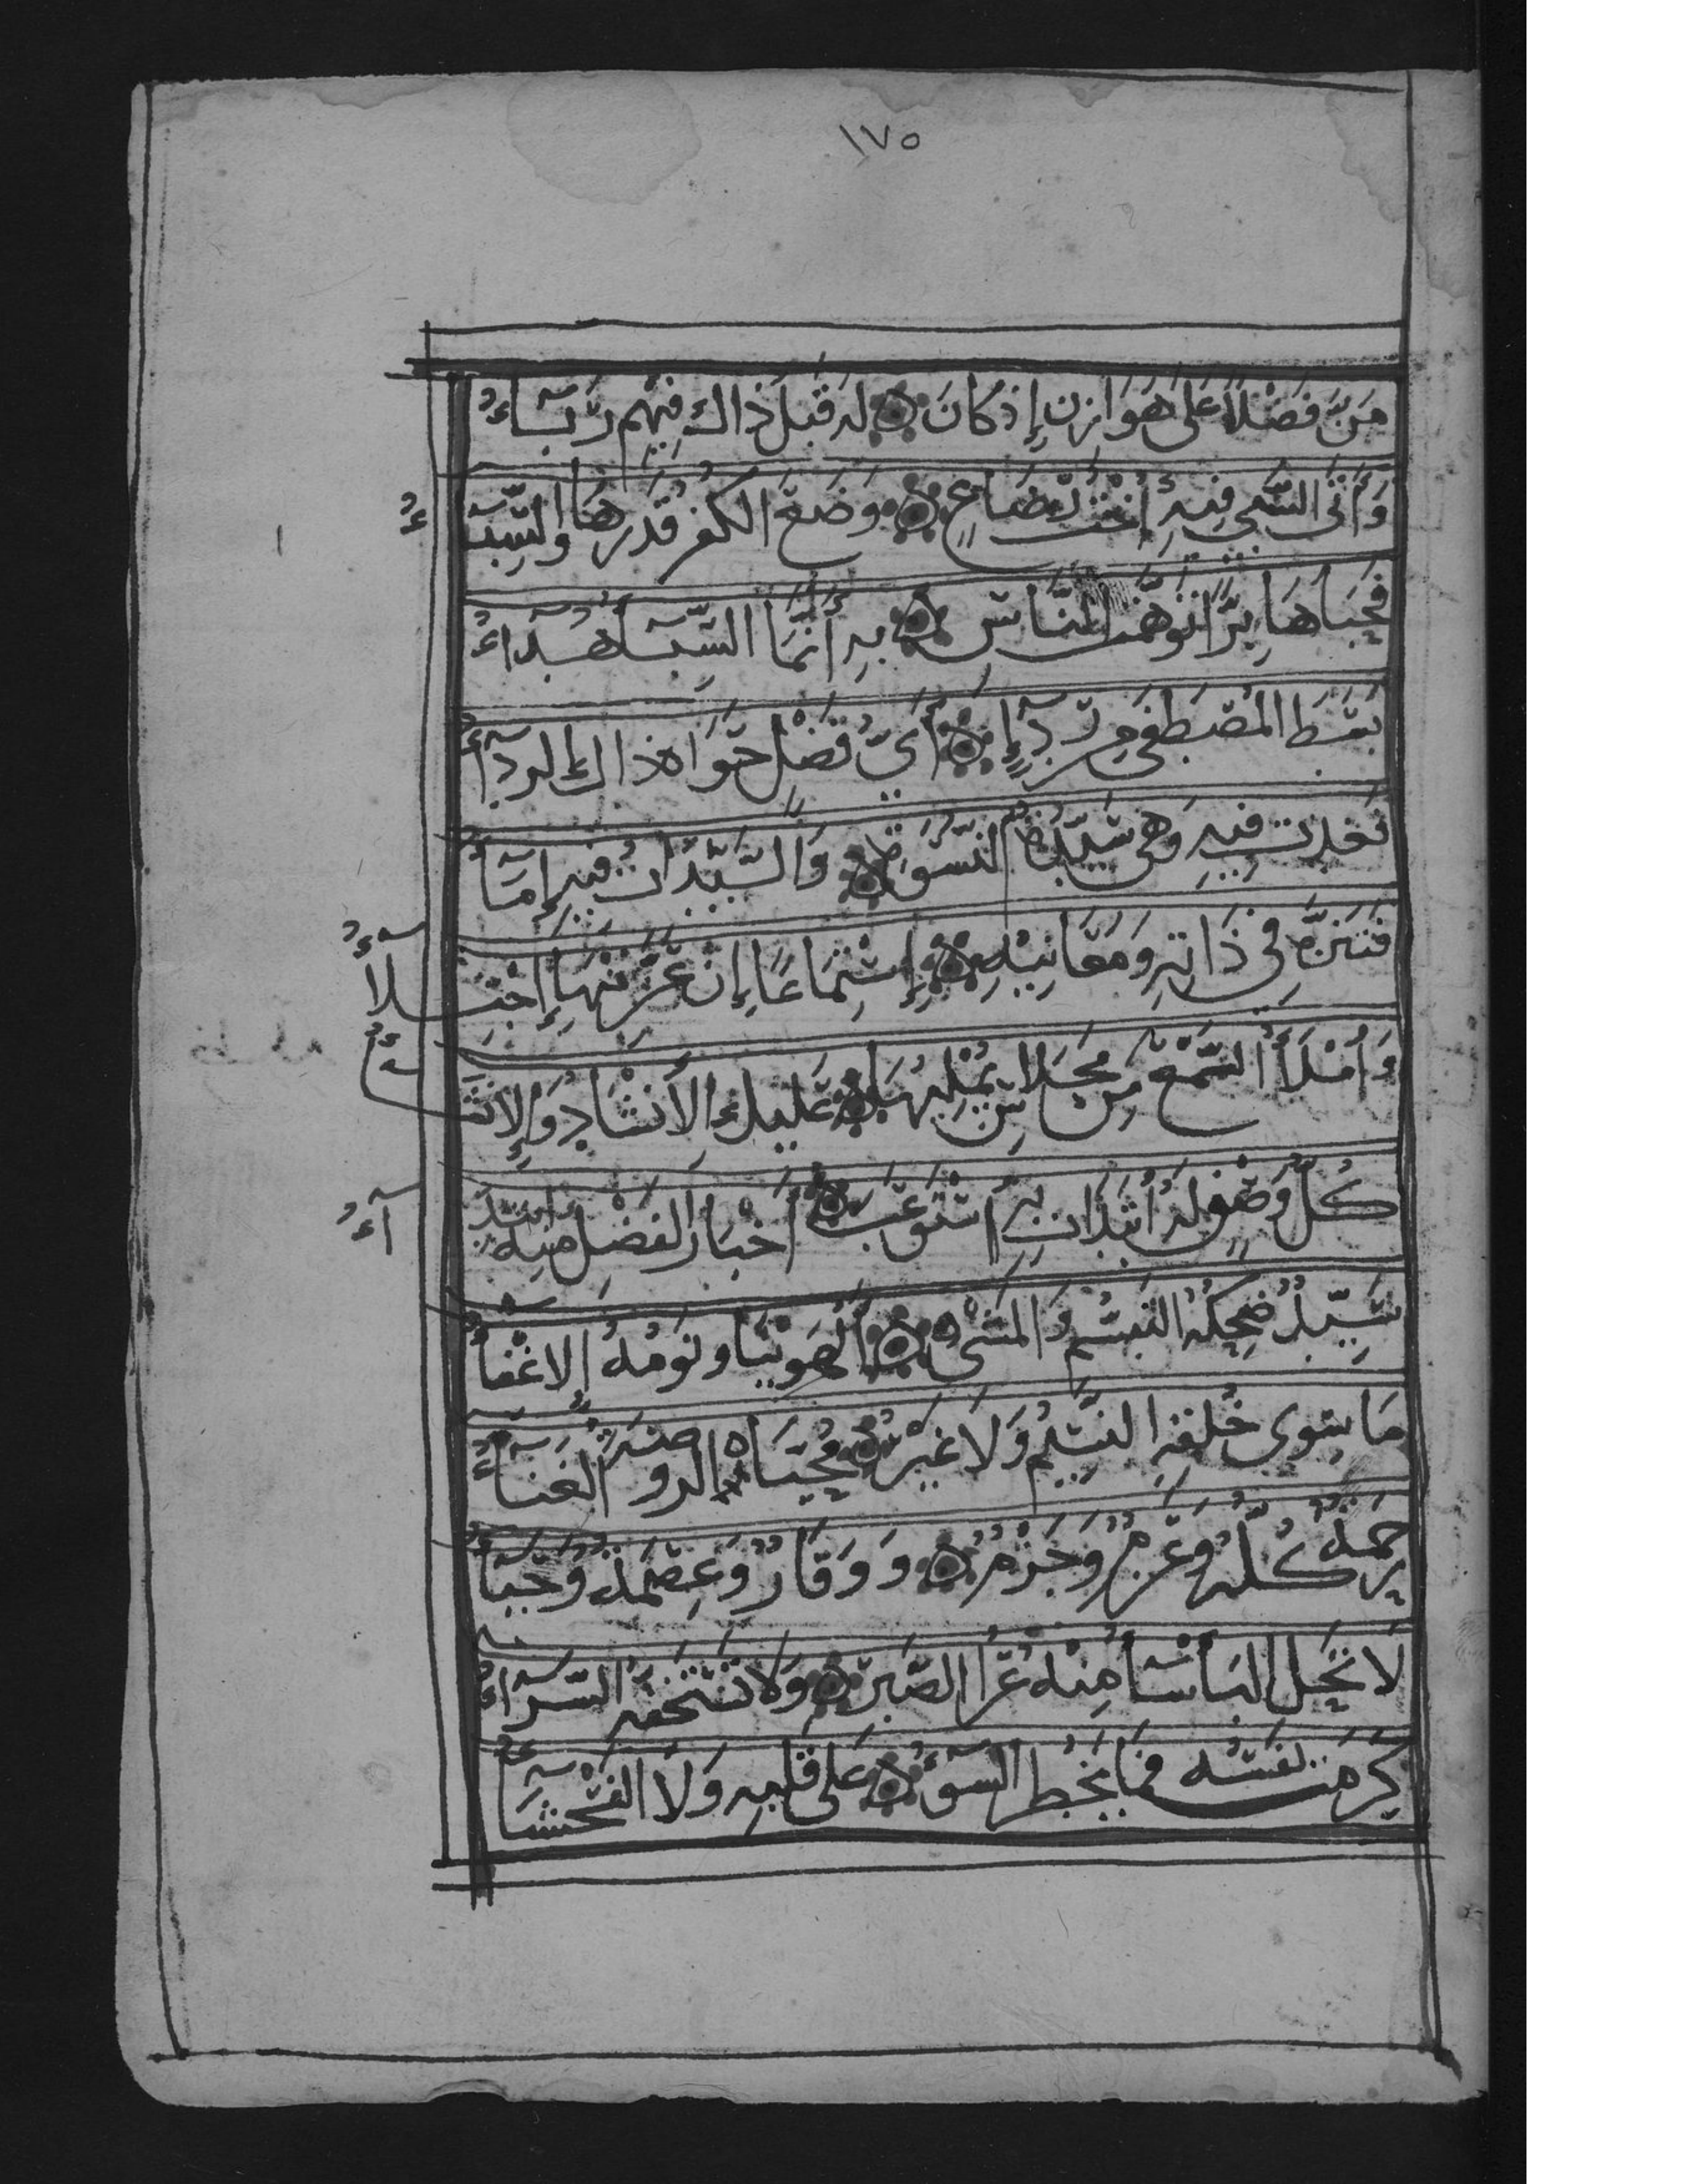 ١٧٥
مَنَّ فَضْلًا عَلَى هَوَازِنَ إِذْ كَانَ لَهُ قَبْلَ ذَاكَ فِيهِم رَبَآءُ
وَأَتَى السَّبْيُ فِيهِ أُخْتُ رَضَاعٍ وَضَعَ الكُفْرُ قَدْرَهَا وَالسِّبَآءُ
فَحَبَاهَا بِرًّا تَوَهَّمَتِ النَّاسُ بِهِ أَنَّمَا السِّبَآءُ هِدَآءُ
بَسَطَ المُصْطَفَى مِن رِدَآءٍ أَيُّ فَضْلٍ حَوَاهُ ذَاكَ الرِدَآءُ
فَغَدَتْ فِيهِ وَهِيَ سَيِّدَةُ النِّسْوَةِ وَالسَّيِّدَاتُ فِيهِ إِمَآءُ
فَتَنَزَّهْ فِي ذَاتِهِ وَمَعَانِيهِ إِسْتِمَاعًا إِنْ عَزَّ مِنْهَا إِجْتِلَآءُ
وَامْلَأِ السَّمْعَ مِن مَحَاسِنَ يُمْلِيهَا عَلَيْكَ الأَنْشَادُ وَالإِنْشَآءُ
كُلُّ وَصْفٍ لَهُ ابْتَدَأْتَ بِهِ اسْتَوْعَبَ أَخْبَارَ الفَضْلِ مِنْهُ ابْتِدَآءُ
سَيِّدٌ ضِحْكُهُ التَبَسُّمُ وَالمَشْيُ الهُوَيْنَا وَنَوْمُهُ الإِغْفَآءُ
مَا سِوَى خُلْقِهِ النَسِيمُ وَلَا غَيْرُ مُحَيَّاهُ الرَوْضَةُ الغَنَّآءُ
رَحْمَةٌ كُلُّهُ وَعَزْمٌ وَحَزْمٌ وَوَقَارٌ وَعِصْمَةٌ وَحَيَآءُ
لَا تَحُلُّ البَأْسَآءُ مِنْهُ عُرَا الصَّبْرِ وَلَا تَسْتَخِفُّهُ السَّرَّآءُ
كَرُمَتْ نَفْسُهُ فَمَا يَخْطُرُ السُّوءُ عَلَى قَلْبِهِ وَلَا الفَحْشَآءُ